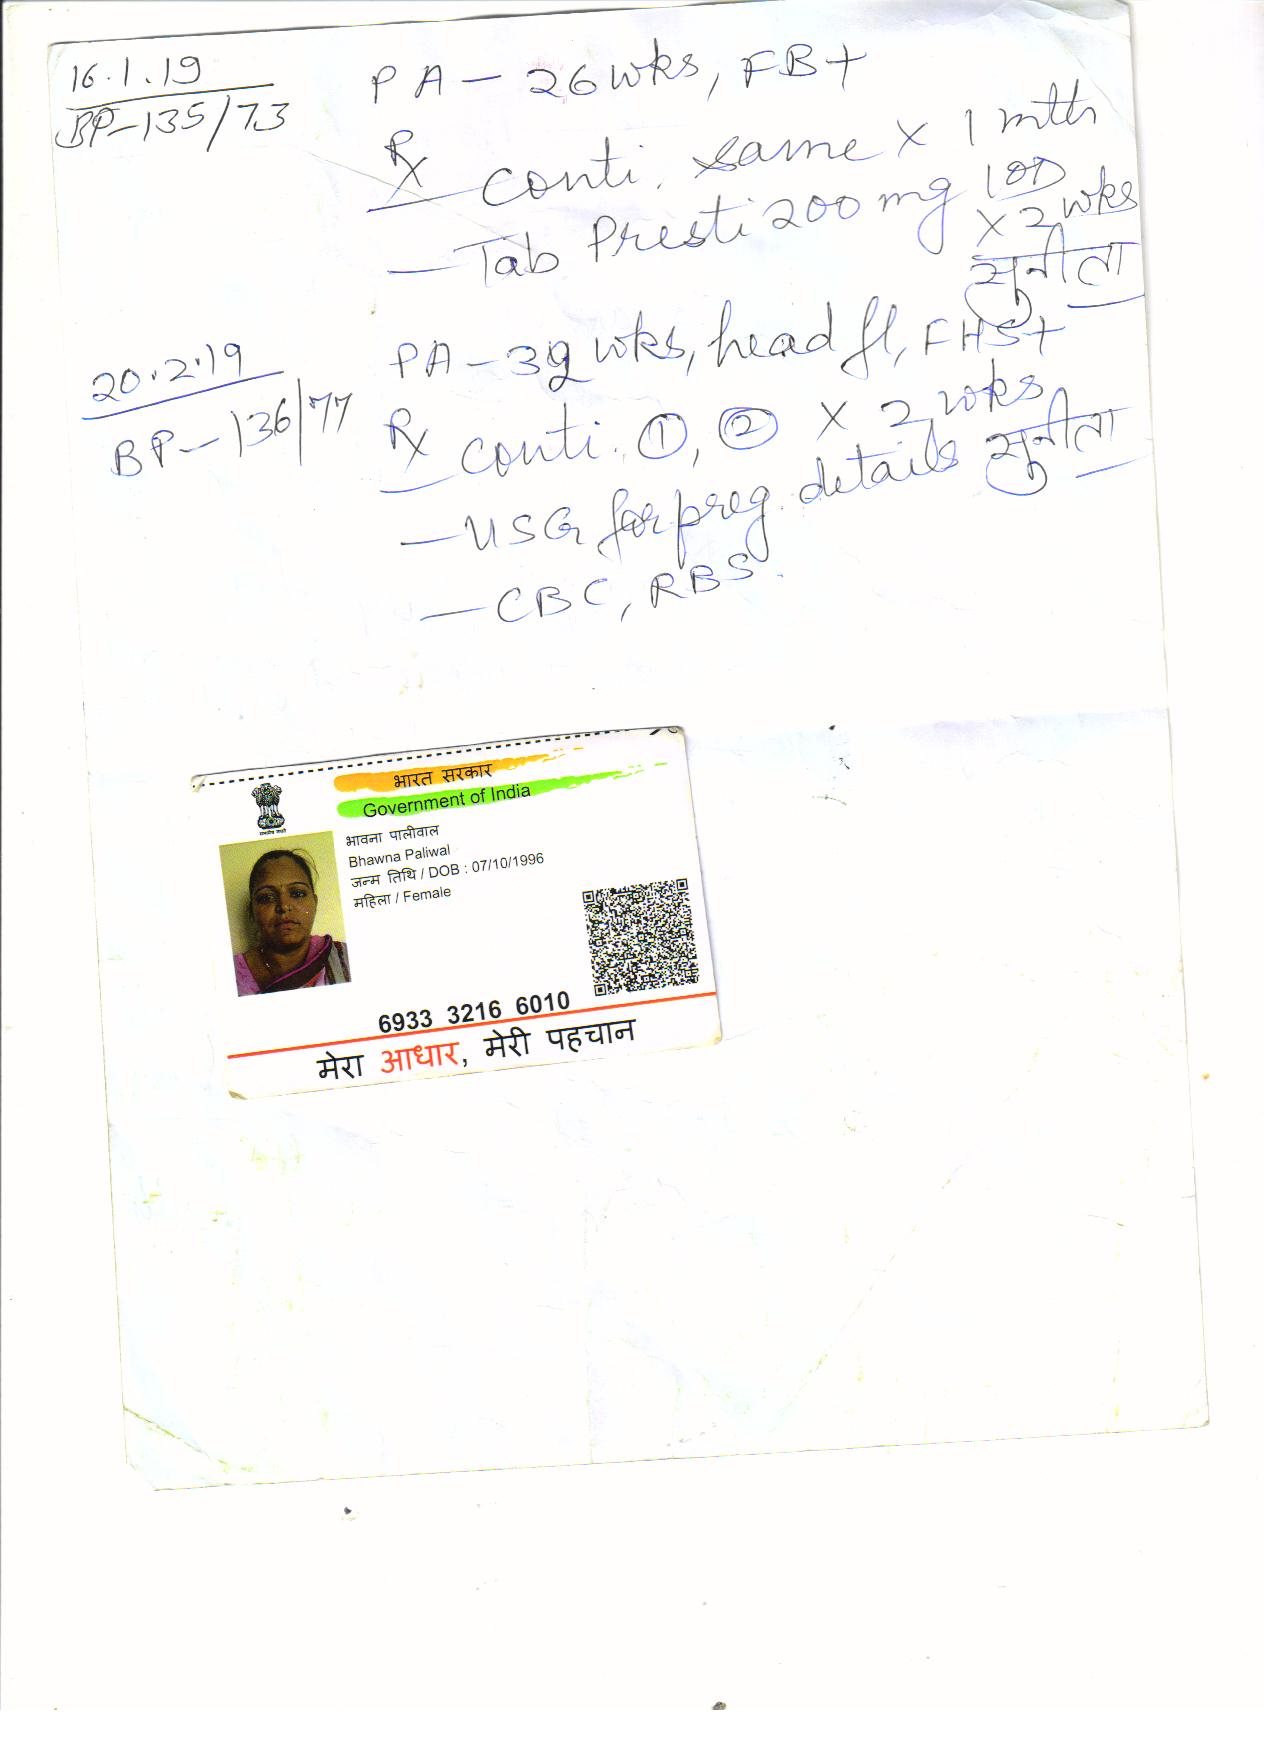 16.1.19
BP-135/73
PA - 26 wks, FB+
Rx conti. same x 1 mth
- Tab Presti 200 mg 1 OD
x 2 wks
सुनीता
20.2.19
BP-136/77
PA - 32 wks, head fl, FHS+
Rx conti. ①, ② x 2 wks
सुनीता
- USG for preg. details
- CBC, RBS.
भारत सरकार
Government of India
भावना पालीवाल
Bhawna Paliwal
जन्म तिथि / DOB : 07/10/1996
महिला / Female
6933 3216 6010
मेरा आधार, मेरी पहचान